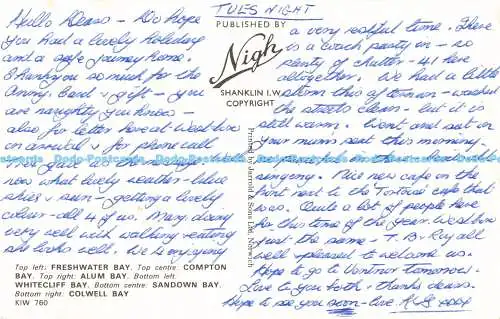 TUES NIGHT
Hello Dears – Do hope
you had a lovely holiday
and a safe journey home.
Thankyou so much for the
Anny. Card & gift – you
are naughty you know –
also for letter here at West
on arrival & for phone call
now what lovely weather – blue
skies & sun – getting a lovely
colour – all 4 of us. Mary doing
very well with walking & eating
& looks well. We is enjoying
PUBLISHED BY
Nigh
SHANKLIN I.W.
COPYRIGHT
Printed by Jarrold & Sons Ltd, Norwich
a very restful time. There
is a coach party in – so
plenty of chatter – 41 here
altogether. We had a little
storm this afternoon – washed
the streets clean – but it is
still warm. Went and sat on
your mums seat this morning.
singing. Nice new cafe on the
front next to the Tortoise cafe that
was. Quite a lot of people here
for this time of the year. West
just the same – T. B. Ry all
well – pleased to welcome us.
Hope to go to Ventnor tomorrow.
Love to you both & thanks dears.
Hope to see you soon – love
Top left: FRESHWATER BAY. Top centre: COMPTON
BAY. Top right: ALUM BAY. Bottom left:
WHITECLIFF BAY. Bottom centre: SANDOWN BAY.
Bottom right: COLWELL BAY
KIW 760